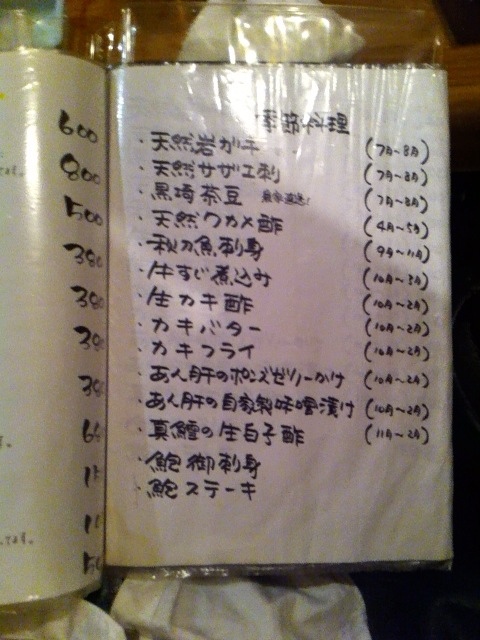 季節料理
・天然岩ガキ (7月～8月)
・天然サザエ刺 (7月～8月)
・黒埼茶豆 農家直送! (7月～8月)
・天然ワカメ酢 (4月～5月)
・秋刀魚刺身 (9月～11月)
・牛すじ煮込み (10月～3月)
・生カキ酢 (10月～2月)
・カキバター (10月～2月)
・カキフライ (10月～2月)
・あん肝のポンズゼリーかけ (10月～2月)
・あん肝の自家製味噌漬け (10月～2月)
・真鱈の生白子酢 (11月～2月)
・鮑御刺身
・鮑ステーキ
600
800
500
380
380